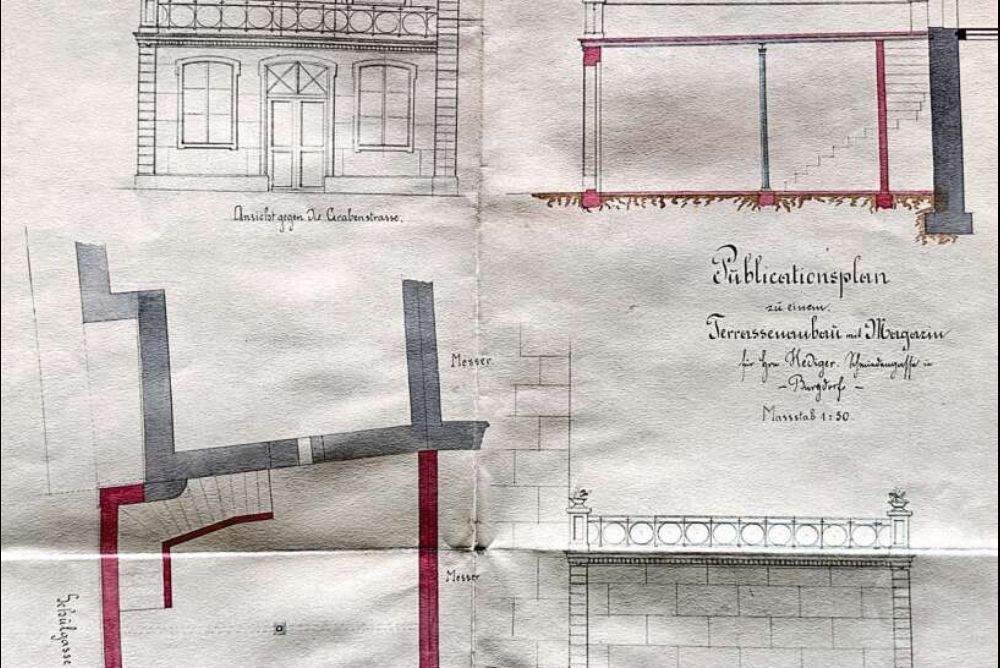 Ansicht gegen die Grabenstrasse.
Publicationsplan
zu einem
Terrassenanbau mit Magazin
für Hrn. Hediger. Schmiedengasse in
- Burgdorf -
Massstab 1:50.
Messer
Messer
Schulgasse